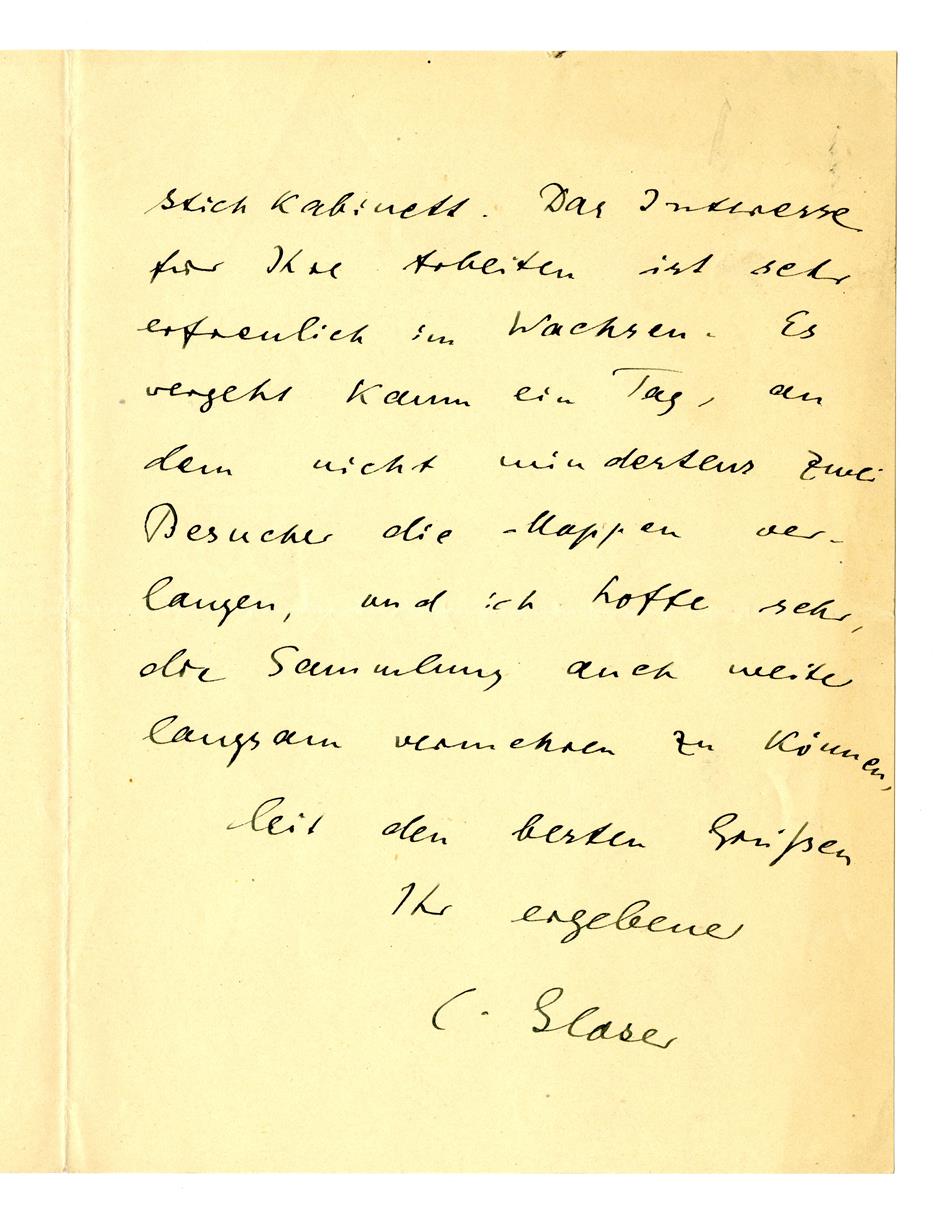 stich Kabinett. Das Interesse
für Ihre Arbeiten ist sehr
erfreulich im Wachsen. Es
vergeht kaum ein Tag, an
dem nicht mindestens zwei
Besucher die Mappen ver-
langen, und ich hoffe sehr,
die Sammlung auch weiter
langsam vermehren zu können,
Mit den besten Grüßen
Ihr ergebener
C. Glaser